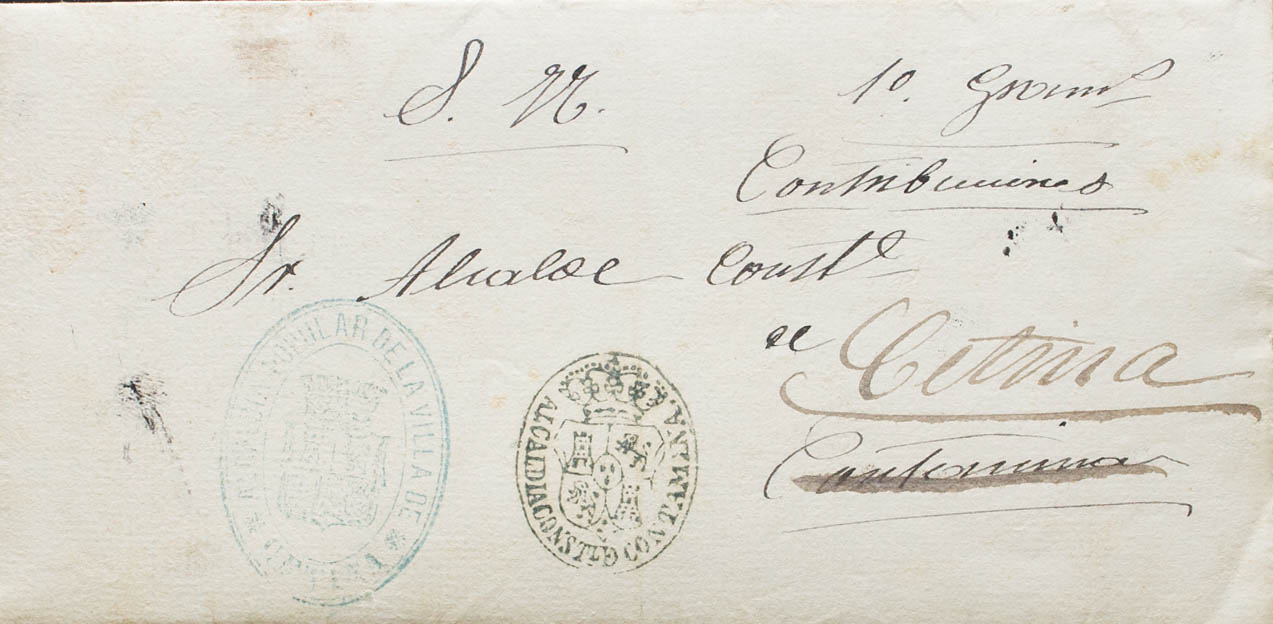 S. N. 1º. Gram.l
Contribuciones
Sr. Alcalde Const.l
de Cetina
Contamina
ALCALDIA POPULAR DE LA VILLA DE * CETINA *
ALCALDIA CONSTL D CONTAMINA.